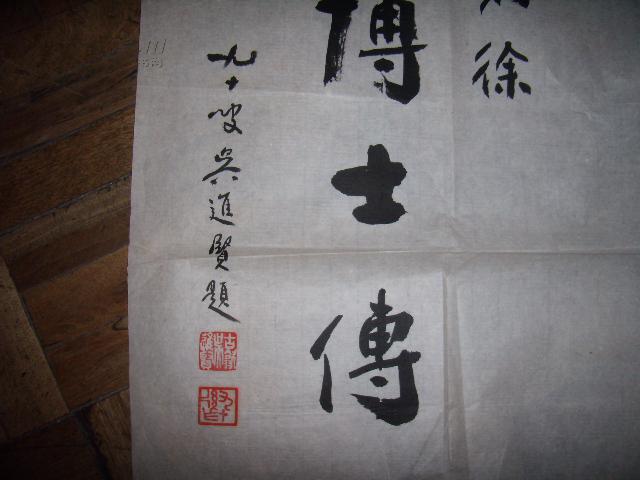 徐
博士傳
九十叟吳進賢題